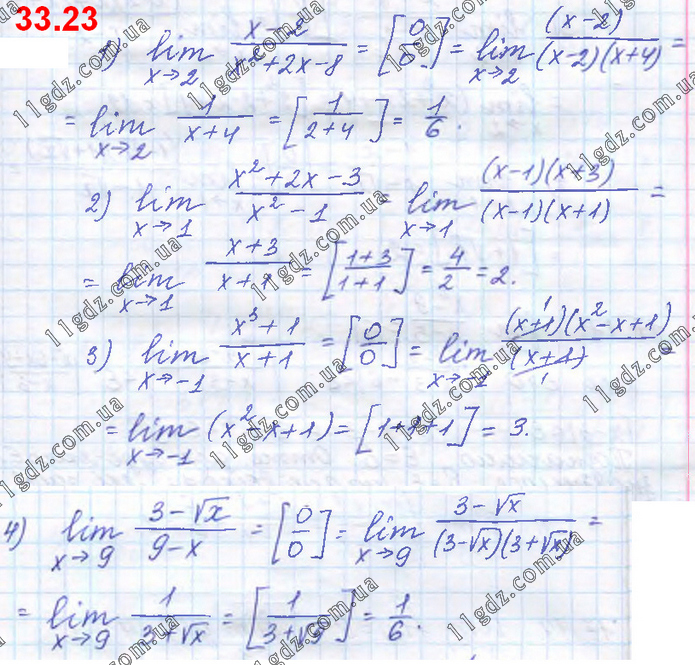 33.23
1) lim x→2 (x-2)/(x²+2x-8) = [0/0] = lim x→2 (x-2)/((x-2)(x+4)) =
= lim x→2 1/(x+4) = [1/(2+4)] = 1/6.
2) lim x→1 (x²+2x-3)/(x²-1) = lim x→1 ((x-1)(x+3))/((x-1)(x+1)) =
= lim x→1 (x+3)/(x+1) = [(1+3)/(1+1)] = 4/2 = 2.
3) lim x→-1 (x³+1)/(x+1) = [0/0] = lim x→-1 ((x+1)(x²-x+1))/(x+1) =
= lim x→-1 (x²-x+1) = [1+1+1] = 3.
4) lim x→9 (3-√x)/(9-x) = [0/0] = lim x→9 (3-√x)/((3-√x)(3+√x)) =
= lim x→9 1/(3+√x) = [1/(3+√9)] = 1/6.
11gdz.com.ua
11gdz.com.ua
11gdz.com.ua
11gdz.com.ua
11gdz.com.ua
11gdz.com.ua
11gdz.com.ua
11gdz.com.ua
11gdz.com.ua